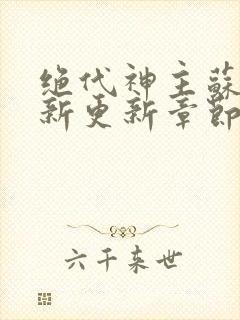 绝代神主蘇
新更新章節
六千来世